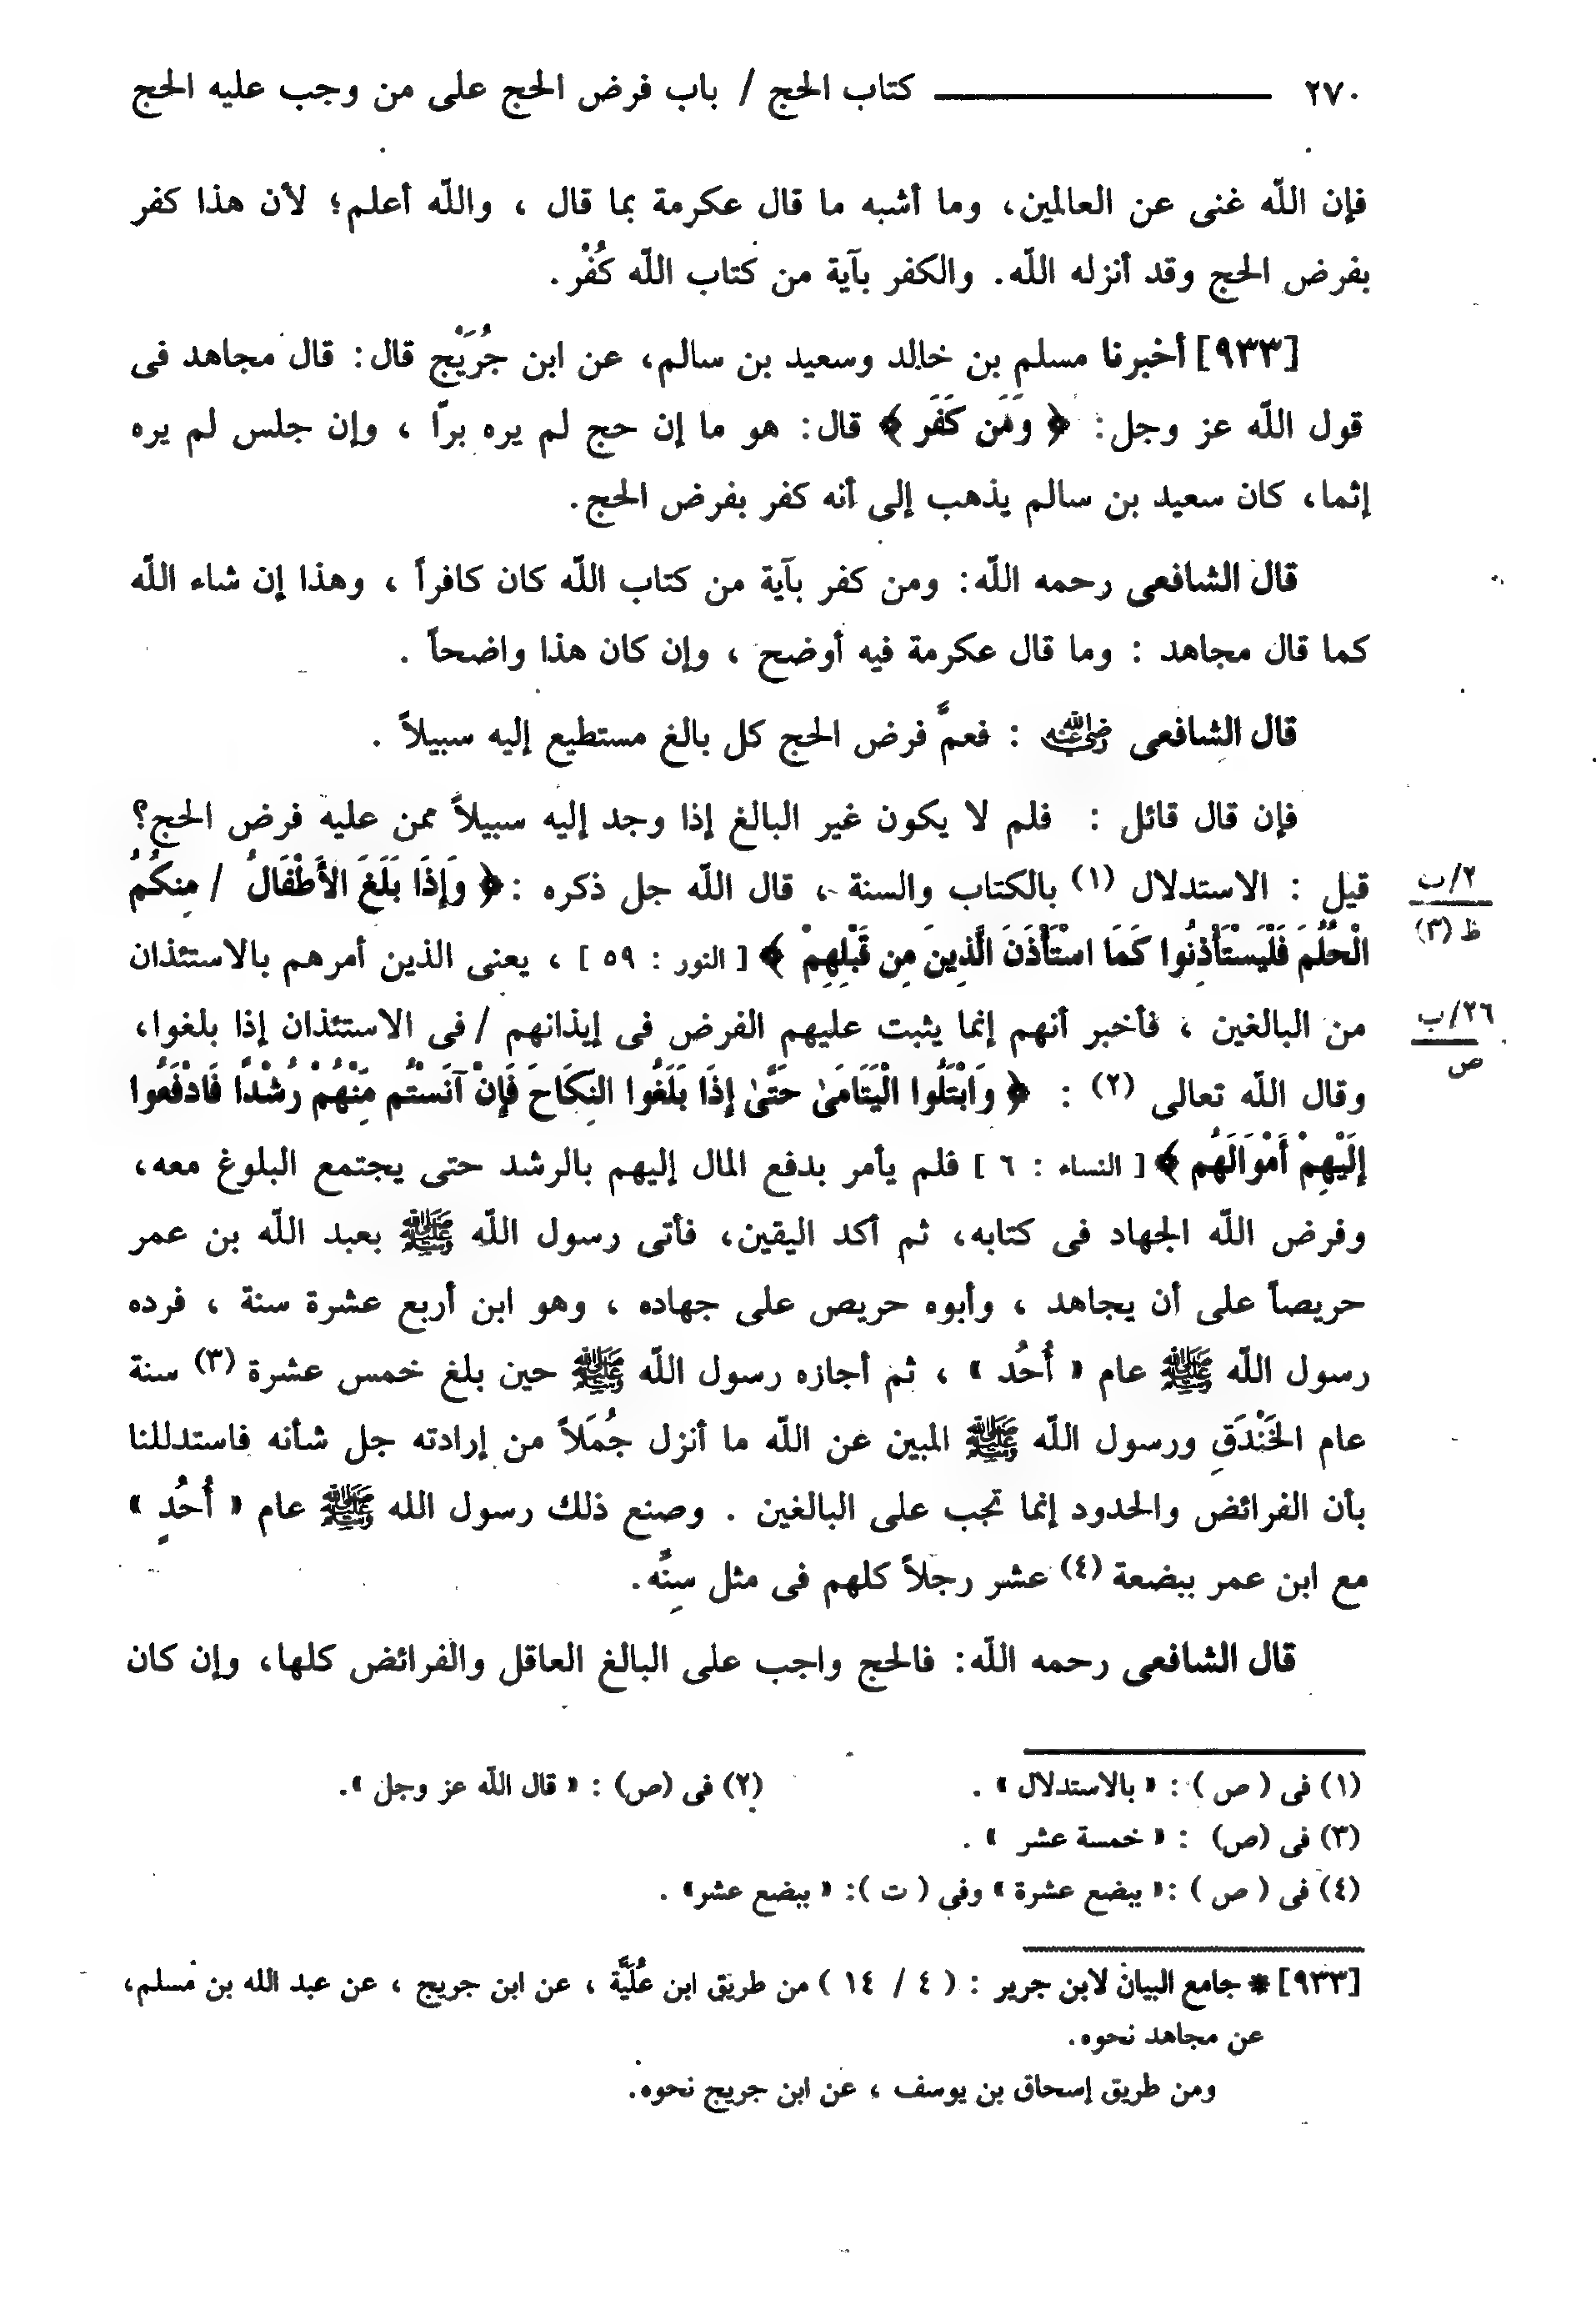 ٢٧٠ ــــــــــ كتاب الحج / باب فرض الحج على من وجب عليه الحج
فإن اللّه غنى عن العالمين، وما أشبه ما قال عكرمة بما قال ، واللّه أعلم؛ لأن هذا كفر
بفرض الحج وقد أنزله اللّه. والكفر بآية من كتاب اللّه كُفْر.
[٩٣٣] أخبرنا مسلم بن خالد وسعيد بن سالم، عن ابن جُرَيْج قال: قال مجاهد فى
قول اللّه عز وجل: ﴿ وَمَن كَفَرَ ﴾ قال: هو ما إن حج لم يره برّا ، وإن جلس لم يره
إثما، كان سعيد بن سالم يذهب إلى أنه كفر بفرض الحج.
قال الشافعى رحمه اللّه: ومن كفر بآية من كتاب اللّه كان كافراً ، وهذا إن شاء اللّه
كما قال مجاهد : وما قال عكرمة فيه أوضح ، وإن كان هذا واضحاً .
قال الشافعى رضي الله عنه : فعمَّ فرض الحج كل بالغ مستطيع إليه سبيلاً .
فإن قال قائل : فلم لا يكون غير البالغ إذا وجد إليه سبيلاً ممن عليه فرض الحج؟
قيل : الاستدلال (١) بالكتاب والسنة ، قال اللّه جل ذكره :﴿ وَإِذَا بَلَغَ الأَطْفَالُ / مِنكُمُ
٢/ب
ظ (٣)
الْحُلُمَ فَلْيَسْتَأْذِنُوا كَمَا اسْتَأْذَنَ الَّذِينَ مِن قَبْلِهِمْ ﴾ [ النور : ٥٩ ] ، يعنى الذين أمرهم بالاستئذان
من البالغين ، فأخبر أنهم إنما يثبت عليهم الفرض فى إيذانهم / فى الاستئذان إذا بلغوا،
٢٦/ب
ص
وقال اللّه تعالى (٢) : ﴿ وَابْتَلُوا الْيَتَامَىٰ حَتَّىٰ إِذَا بَلَغُوا النِكَاحَ فَإِنْ آنَسْتُم مِّنْهُمْ رُشْدًا فَادْفَعُوا
إِلَيْهِمْ أَمْوَالَهُم ﴾ [ النساء : ٦ ] فلم يأمر بدفع المال إليهم بالرشد حتى يجتمع البلوغ معه،
وفرض اللّه الجهاد فى كتابه، ثم أكد اليقين، فأتى رسول اللّه ﷺ بعبد اللّه بن عمر
حريصاً على أن يجاهد ، وأبوه حريص على جهاده ، وهو ابن أربع عشرة سنة ، فرده
رسول اللّه ﷺ عام « أُحُد » ، ثم أجازه رسول اللّه ﷺ حين بلغ خمس عشرة (٣) سنة
عام الخَنْدَقِ ورسول اللّه ﷺ المبين عن اللّه ما أنزل جُمَلاً من إرادته جل شأنه فاستدللنا
بأن الفرائض والحدود إنما تجب على البالغين . وصنع ذلك رسول الله ﷺ عام « أُحُدٍ »
مع ابن عمر ببضعة (٤) عشر رجلاً كلهم فى مثل سِنِّه.
قال الشافعى رحمه اللّه: فالحج واجب على البالغ العاقل والفرائض كلها، وإن كان
(١) فى ( ص ) : « بالاستدلال » . (٢) فى (ص) : « قال اللّه عز وجل ».
(٣) فى (ص) : « خمسة عشر » .
(٤) فى ( ص ) :« ببضع عشرة » وفى ( ت ): « ببضع عشر» .
[٩٣٣] * جامع البيان لابن جرير : ( ٤ / ١٤ ) من طريق ابن عُلَيَّة ، عن ابن جريج ، عن عبد الله بن مسلم،
عن مجاهد نحوه.
ومن طريق إسحاق بن يوسف ، عن ابن جريج نحوه.